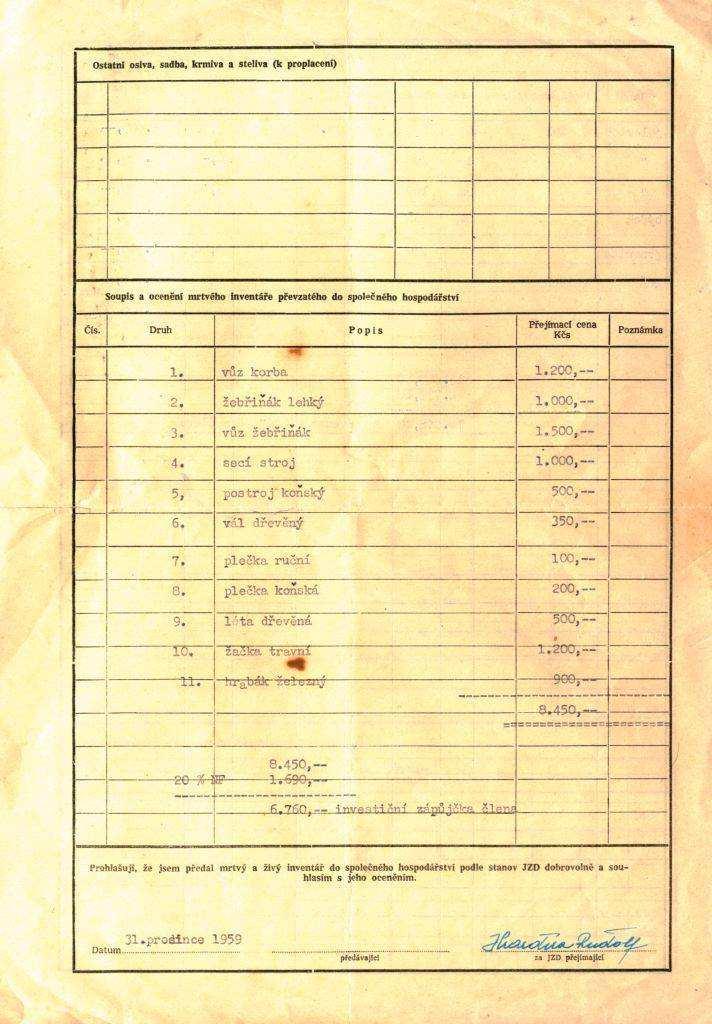 Ostatní osiva, sadba, krmiva a steliva (k proplacení)
Soupis a ocenění mrtvého inventáře převzatého do společného hospodářství
Čís. Druh Popis Přejímací cena Kčs Poznámka
1. vůz korba 1.200,--
2. žebřiňák lehký 1.000,--
3. vůz žebřiňák 1.500,--
4. secí stroj 1.000,--
5, postroj koňský 500,--
6. vál dřevěný 350,--
7. plečka ruční 100,--
8. plečka koňská 200,--
9. léta dřevěná 500,--
10. žačka travní 1.200,--
11. hrabák železný 900,--
8.450,--
8.450,--
20 % NF 1.690,--
6.760,-- investiční zápůjčka člena
Prohlašuji, že jsem předal mrtvý a živý inventář do společného hospodářství podle stanov JZD dobrovolně a sou-
hlasím s jeho oceněním.
Datum 31.prosince 1959 Rudolf
předávající za JZD přejímající